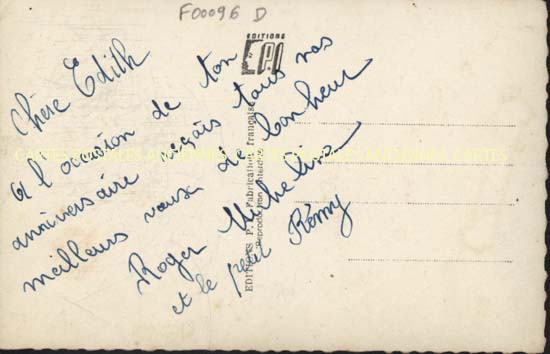 F00096 D
EDITIONS
E.P.I.
Chère Edith
A l'occasion de ton
anniversaire reçois tous nos
meilleurs vœux de bonheur
Roger Micheline
et le petit Rémy
EDITIONS P. I. Fabrication française
Reproduction interdite